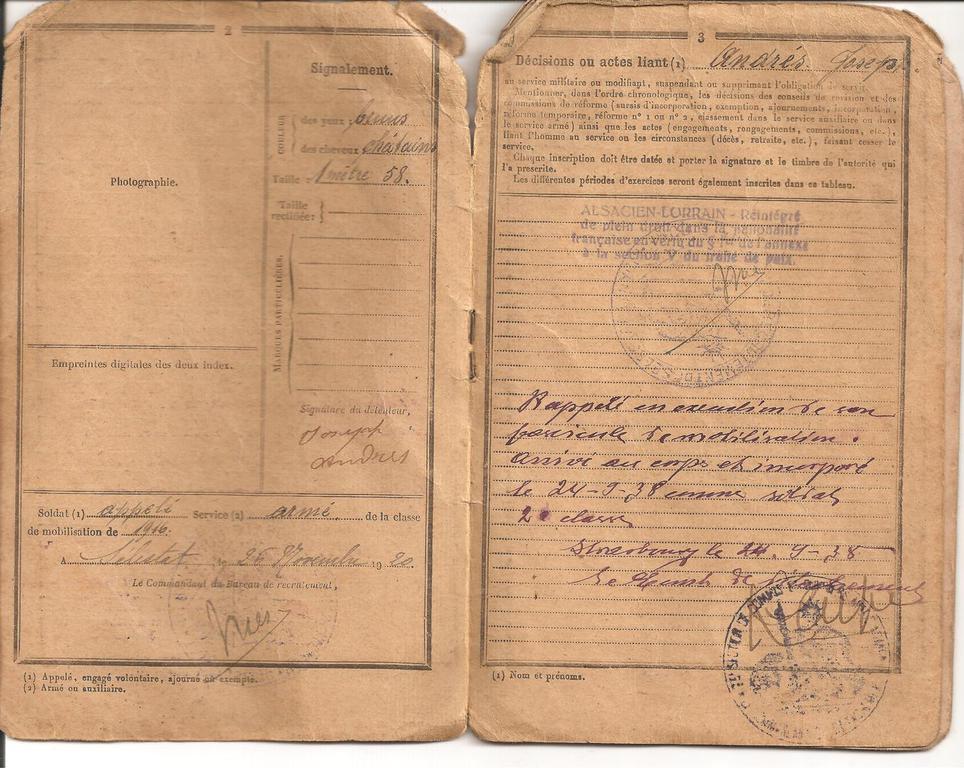 2
Signalement.
COULEUR
des yeux : bruns
des cheveux châtains
Taille : 1 mètre 58.
Taille
rectifiée :
MARQUES PARTICULIÈRES.
Photographie.
Empreintes digitales des deux index.
Signature du détenteur,
Joseph
Andrés
Soldat (1) appelé Service (2) armé de la classe
de mobilisation de 1916.
A Sélestat 26 Novembre 1920.
Le Commandant du Bureau de recrutement,
(1) Appelé, engagé volontaire, ajourné ou exempté.
(2) Armé ou auxiliaire.
3
Décisions ou actes liant (1) Andrés Joseph
au service militaire ou modifiant, suspendant ou supprimant l'obligation de servir.
Mentionner, dans l'ordre chronologique, les décisions des conseils de revision et des
commissions de réforme (sursis d'incorporation, exemption, ajournement,
réforme temporaire, réforme n° 1 ou n° 2, classement dans le service auxiliaire ou dans
le service armé) ainsi que les actes (engagements, rengagements, commissions, etc.),
liant l'homme au service ou les circonstances (décès, retraite, etc.), faisant cesser le
service.
Chaque inscription doit être datée et porter la signature et le timbre de l'autorité qui
l'a prescrite.
Les différentes périodes d'exercices seront également inscrites dans ce tableau.
ALSACIEN-LORRAIN - Réintégré
de plein droit dans la nationalité
française en vertu du § 1er de l'annexe
à la section V du traité de paix.
Rappelé en exécution de son
fascicule de mobilisation.
Arrivé au corps et incorporé
le 24-9-38 comme soldat
2e classe
Strasbourg le 24-9-38
Le
(1) Nom et prénoms.